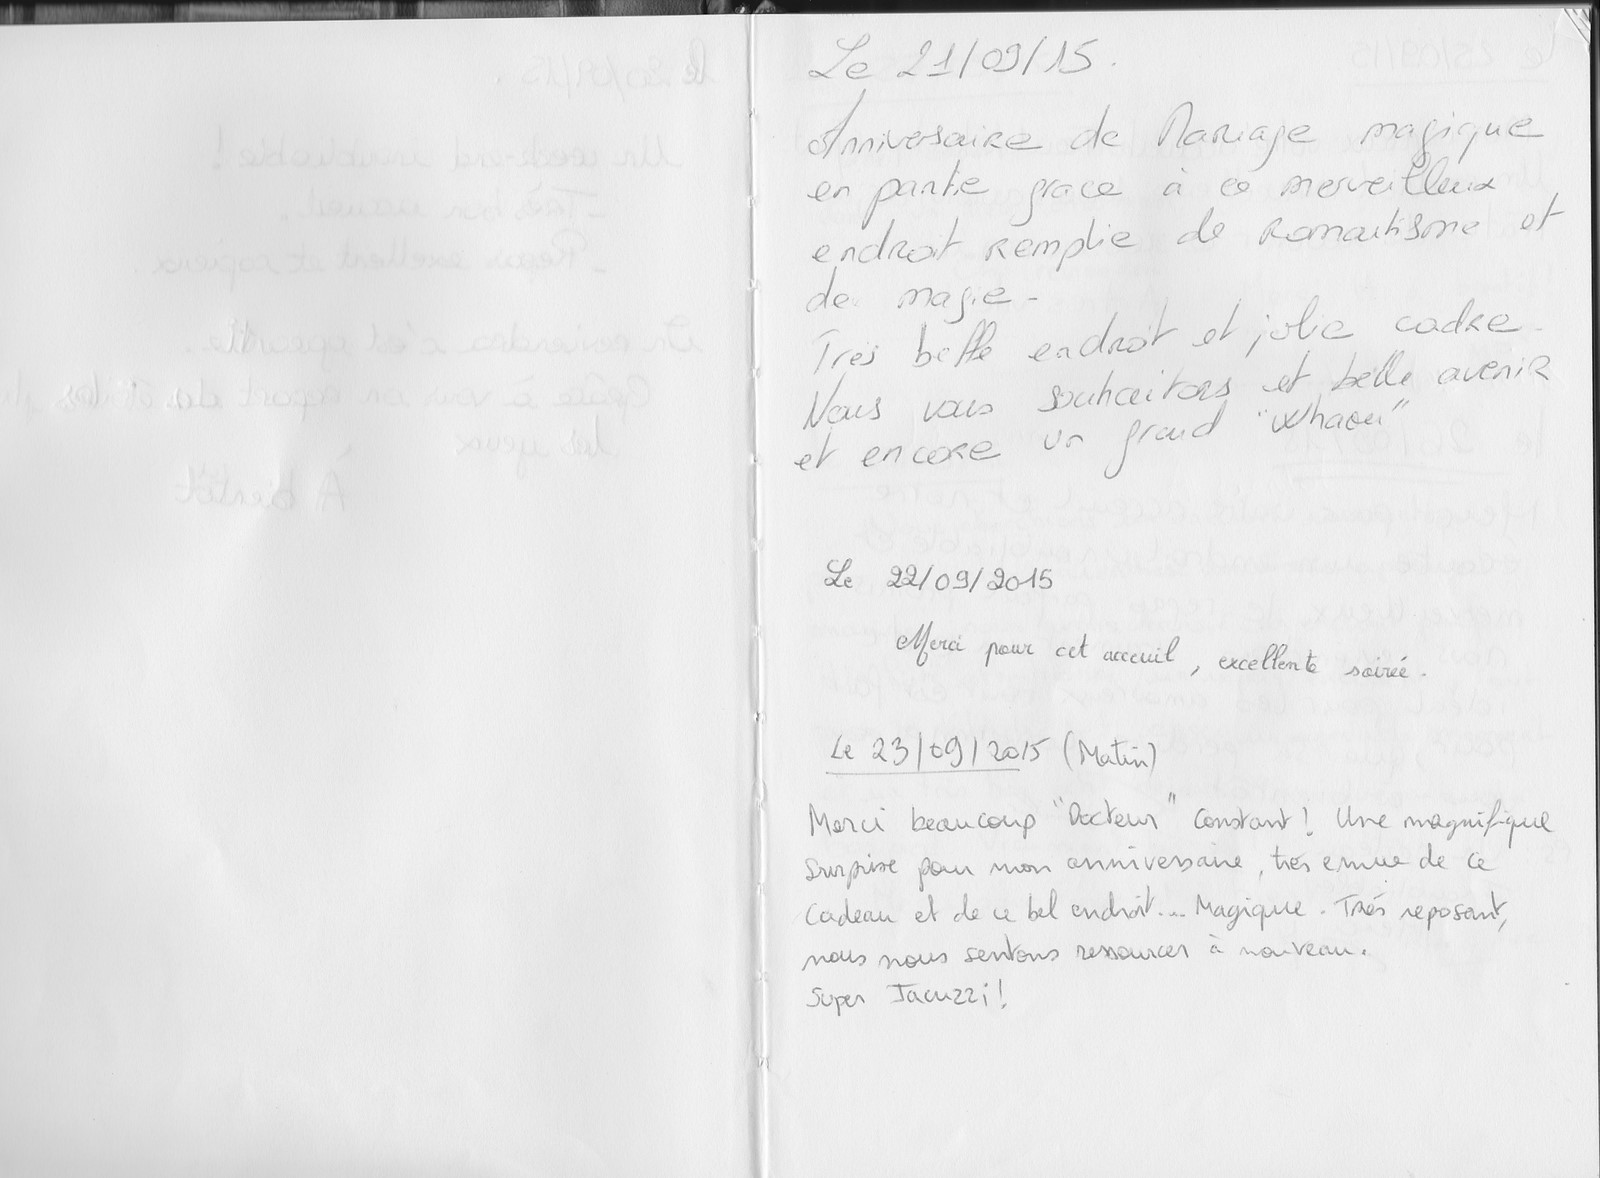 Le 21/09/15.
Anniversaire de Mariage magique
en partie grace à ce merveilleux
endroit remplie de Romantisme et
de magie -
Très belle endroit et jolie cadre.
Nous vous souhaitons et belle avenir
et encore un grand "Whaou"
Le 22/09/2015
Merci pour cet acceuil, excellente soirée.
Le 23/09/2015 (Matin)
Merci beaucoup "Docteur" Constant! Une magnifique
surprise pour mon anniversaire, très emue de ce
cadeau et de ce bel endroit... Magique. Très reposant,
nous nous sentons ressourcer à nouveau.
Super Jacuzzi!